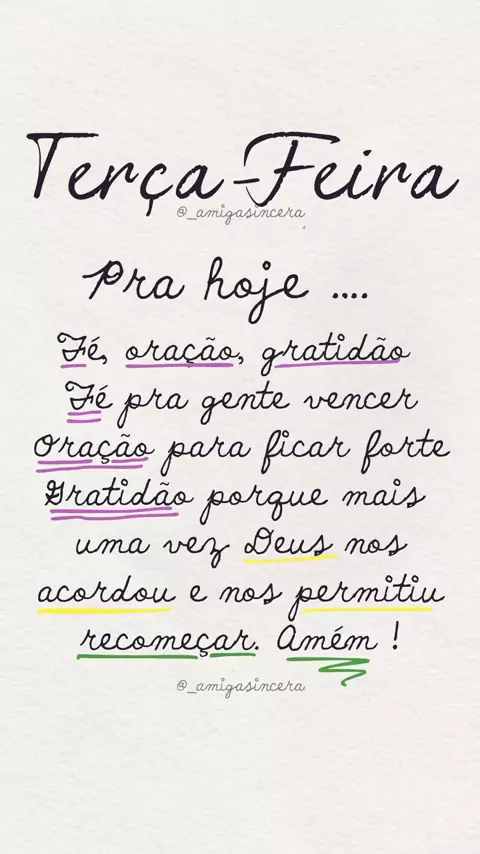 Terça-Feira
@_amigasincera
Pra hoje ....
Fé, oração, gratidão
Fé pra gente vencer
Oração para ficar forte
Gratidão porque mais
uma vez Deus nos
acordou e nos permitiu
recomeçar. Amém !
@_amigasincera